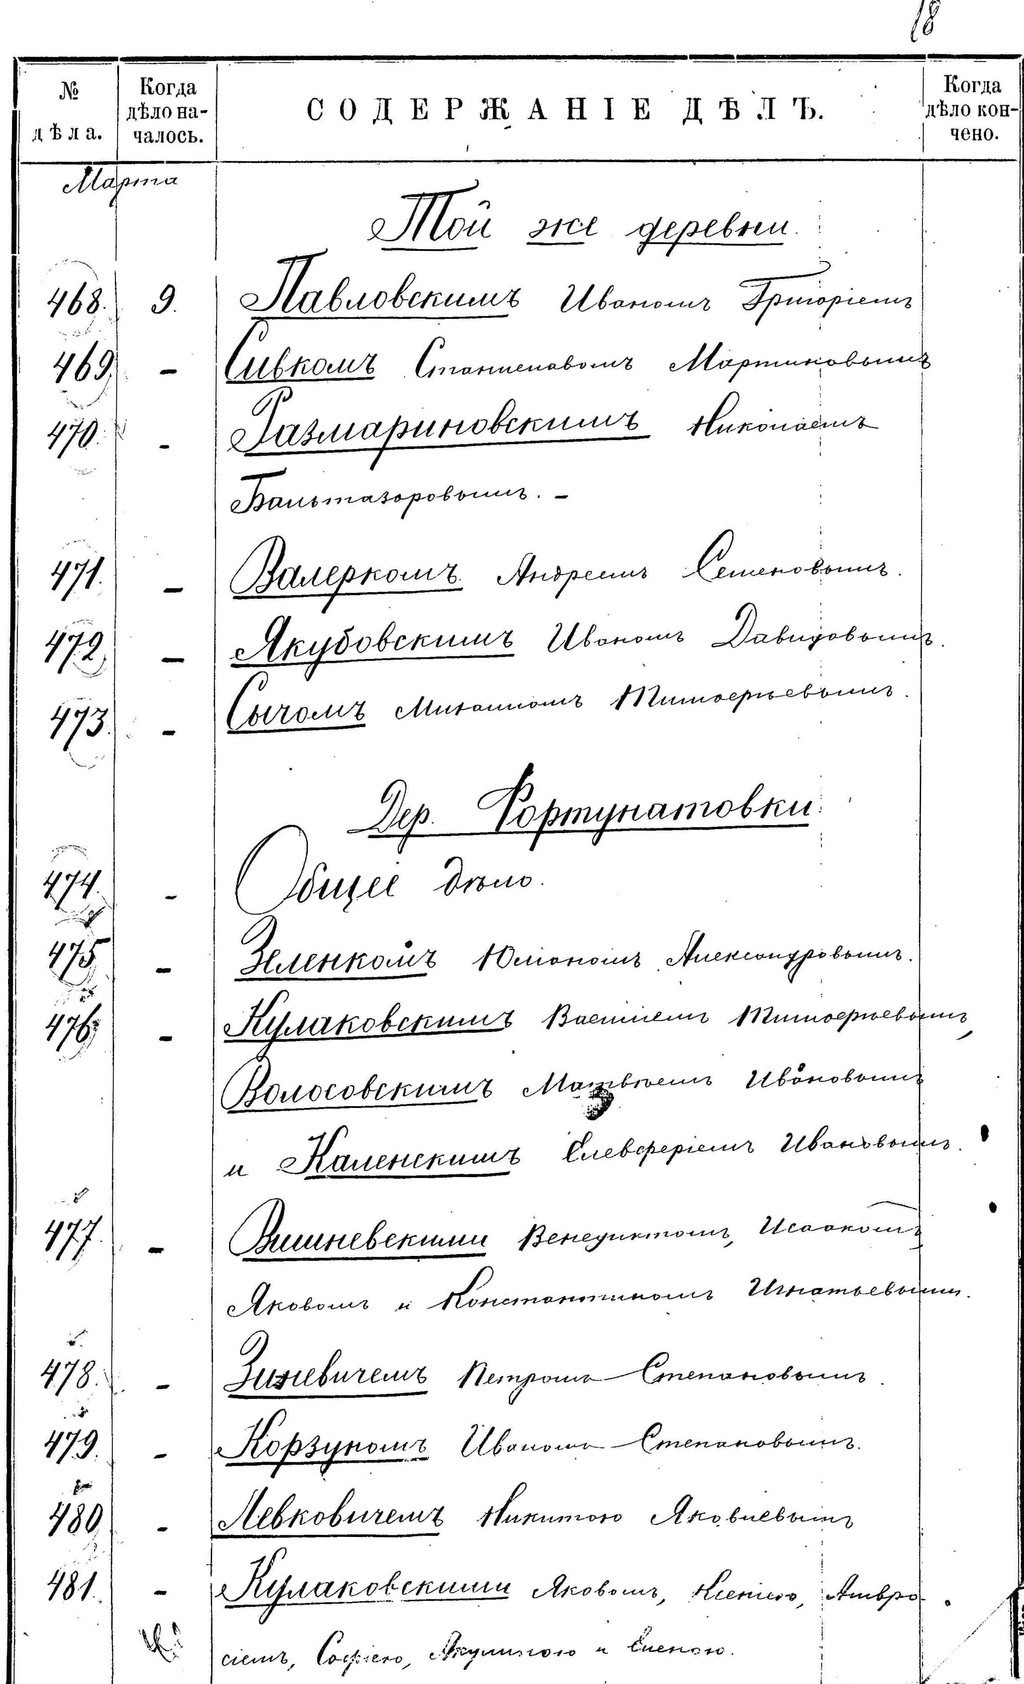 18
№ дѣла.
Когда дѣло началось.
СОДЕРЖАНІЕ ДѢЛЪ.
Когда дѣло кончено.
Марта
Той же деревни.
468. 9. Павловскимъ Иваномъ Григоріемъ
469. - Сивкомъ Станиславомъ Мартиновымъ
470. - Размариновскимъ Николаемъ
Бальтазоровымъ. -
471. - Валеркомъ Андреемъ Семеновымъ.
472. - Якубовскимъ Иваномъ Давидовымъ.
473. - Сычомъ Михаиломъ Тимофеевымъ.
Дер. Фортунатовки.
474. - Общее дѣло.
475. - Зеленкомъ Юліаномъ Александровымъ.
476. - Кулаковскимъ Василіемъ Тимофеевымъ,
Волосовскимъ Матвѣемъ Ивановымъ
и Каленскимъ Елевферіемъ Ивановымъ.
477. - Вишневскими Венедиктомъ, Исаакомъ,
Яковомъ и Константиномъ Игнатьевыми.
478. - Зиневичемъ Петромъ Степановымъ.
479. - Корзуномъ Иваномъ Степановымъ.
480. - Левковичемъ Никитою Яковлевымъ
481. - Кулаковскими Яковомъ, Ксеніею, Амвро-
сіемъ, Софіею, Акулиною и Еленою.